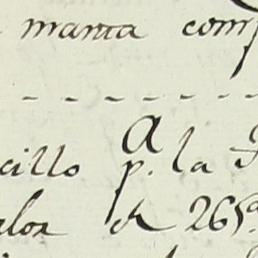 manta com
cillo p.ª la
alor de 265